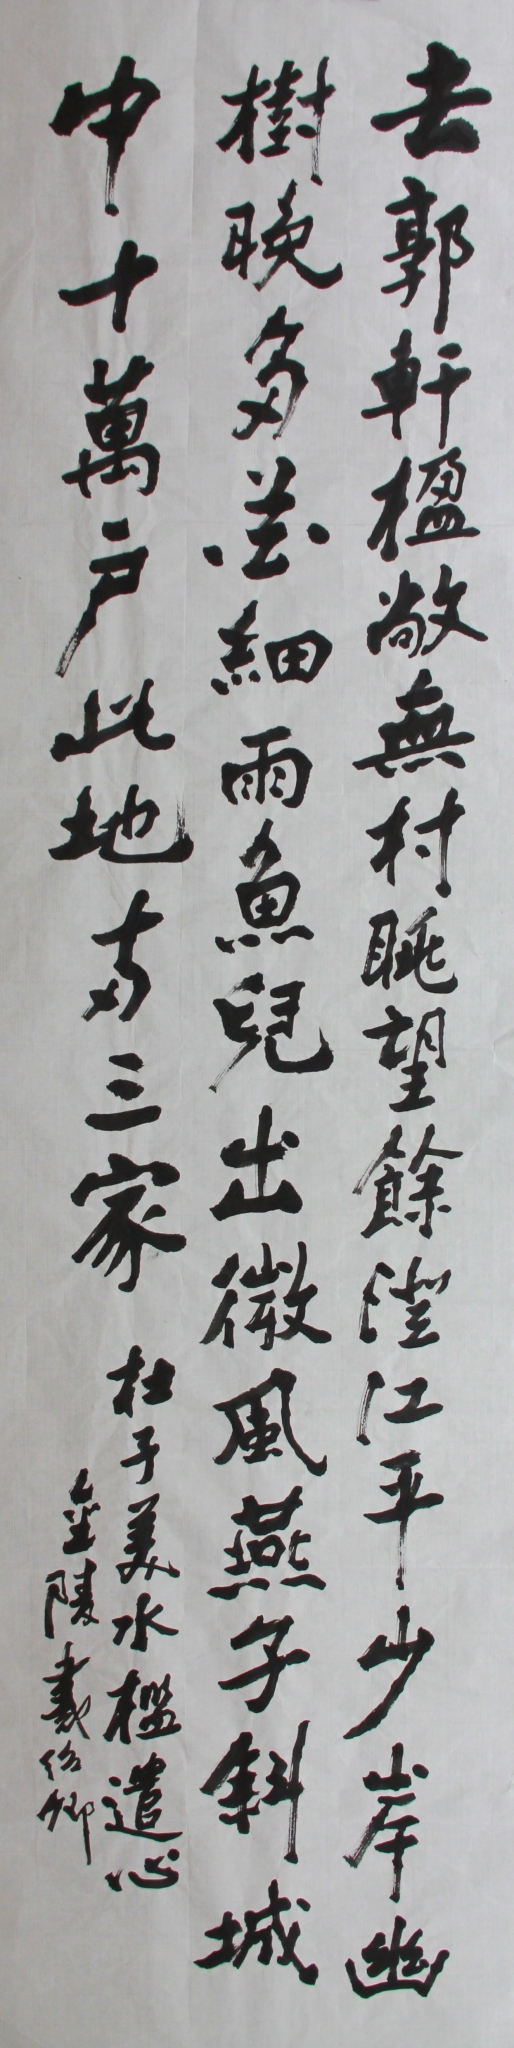 去郭軒楹敞無村眺望餘澄江平少岸幽
樹晚多花細雨魚兒出微風燕子斜城
中十萬戶此地兩三家
杜子美水檻遣心
金陵